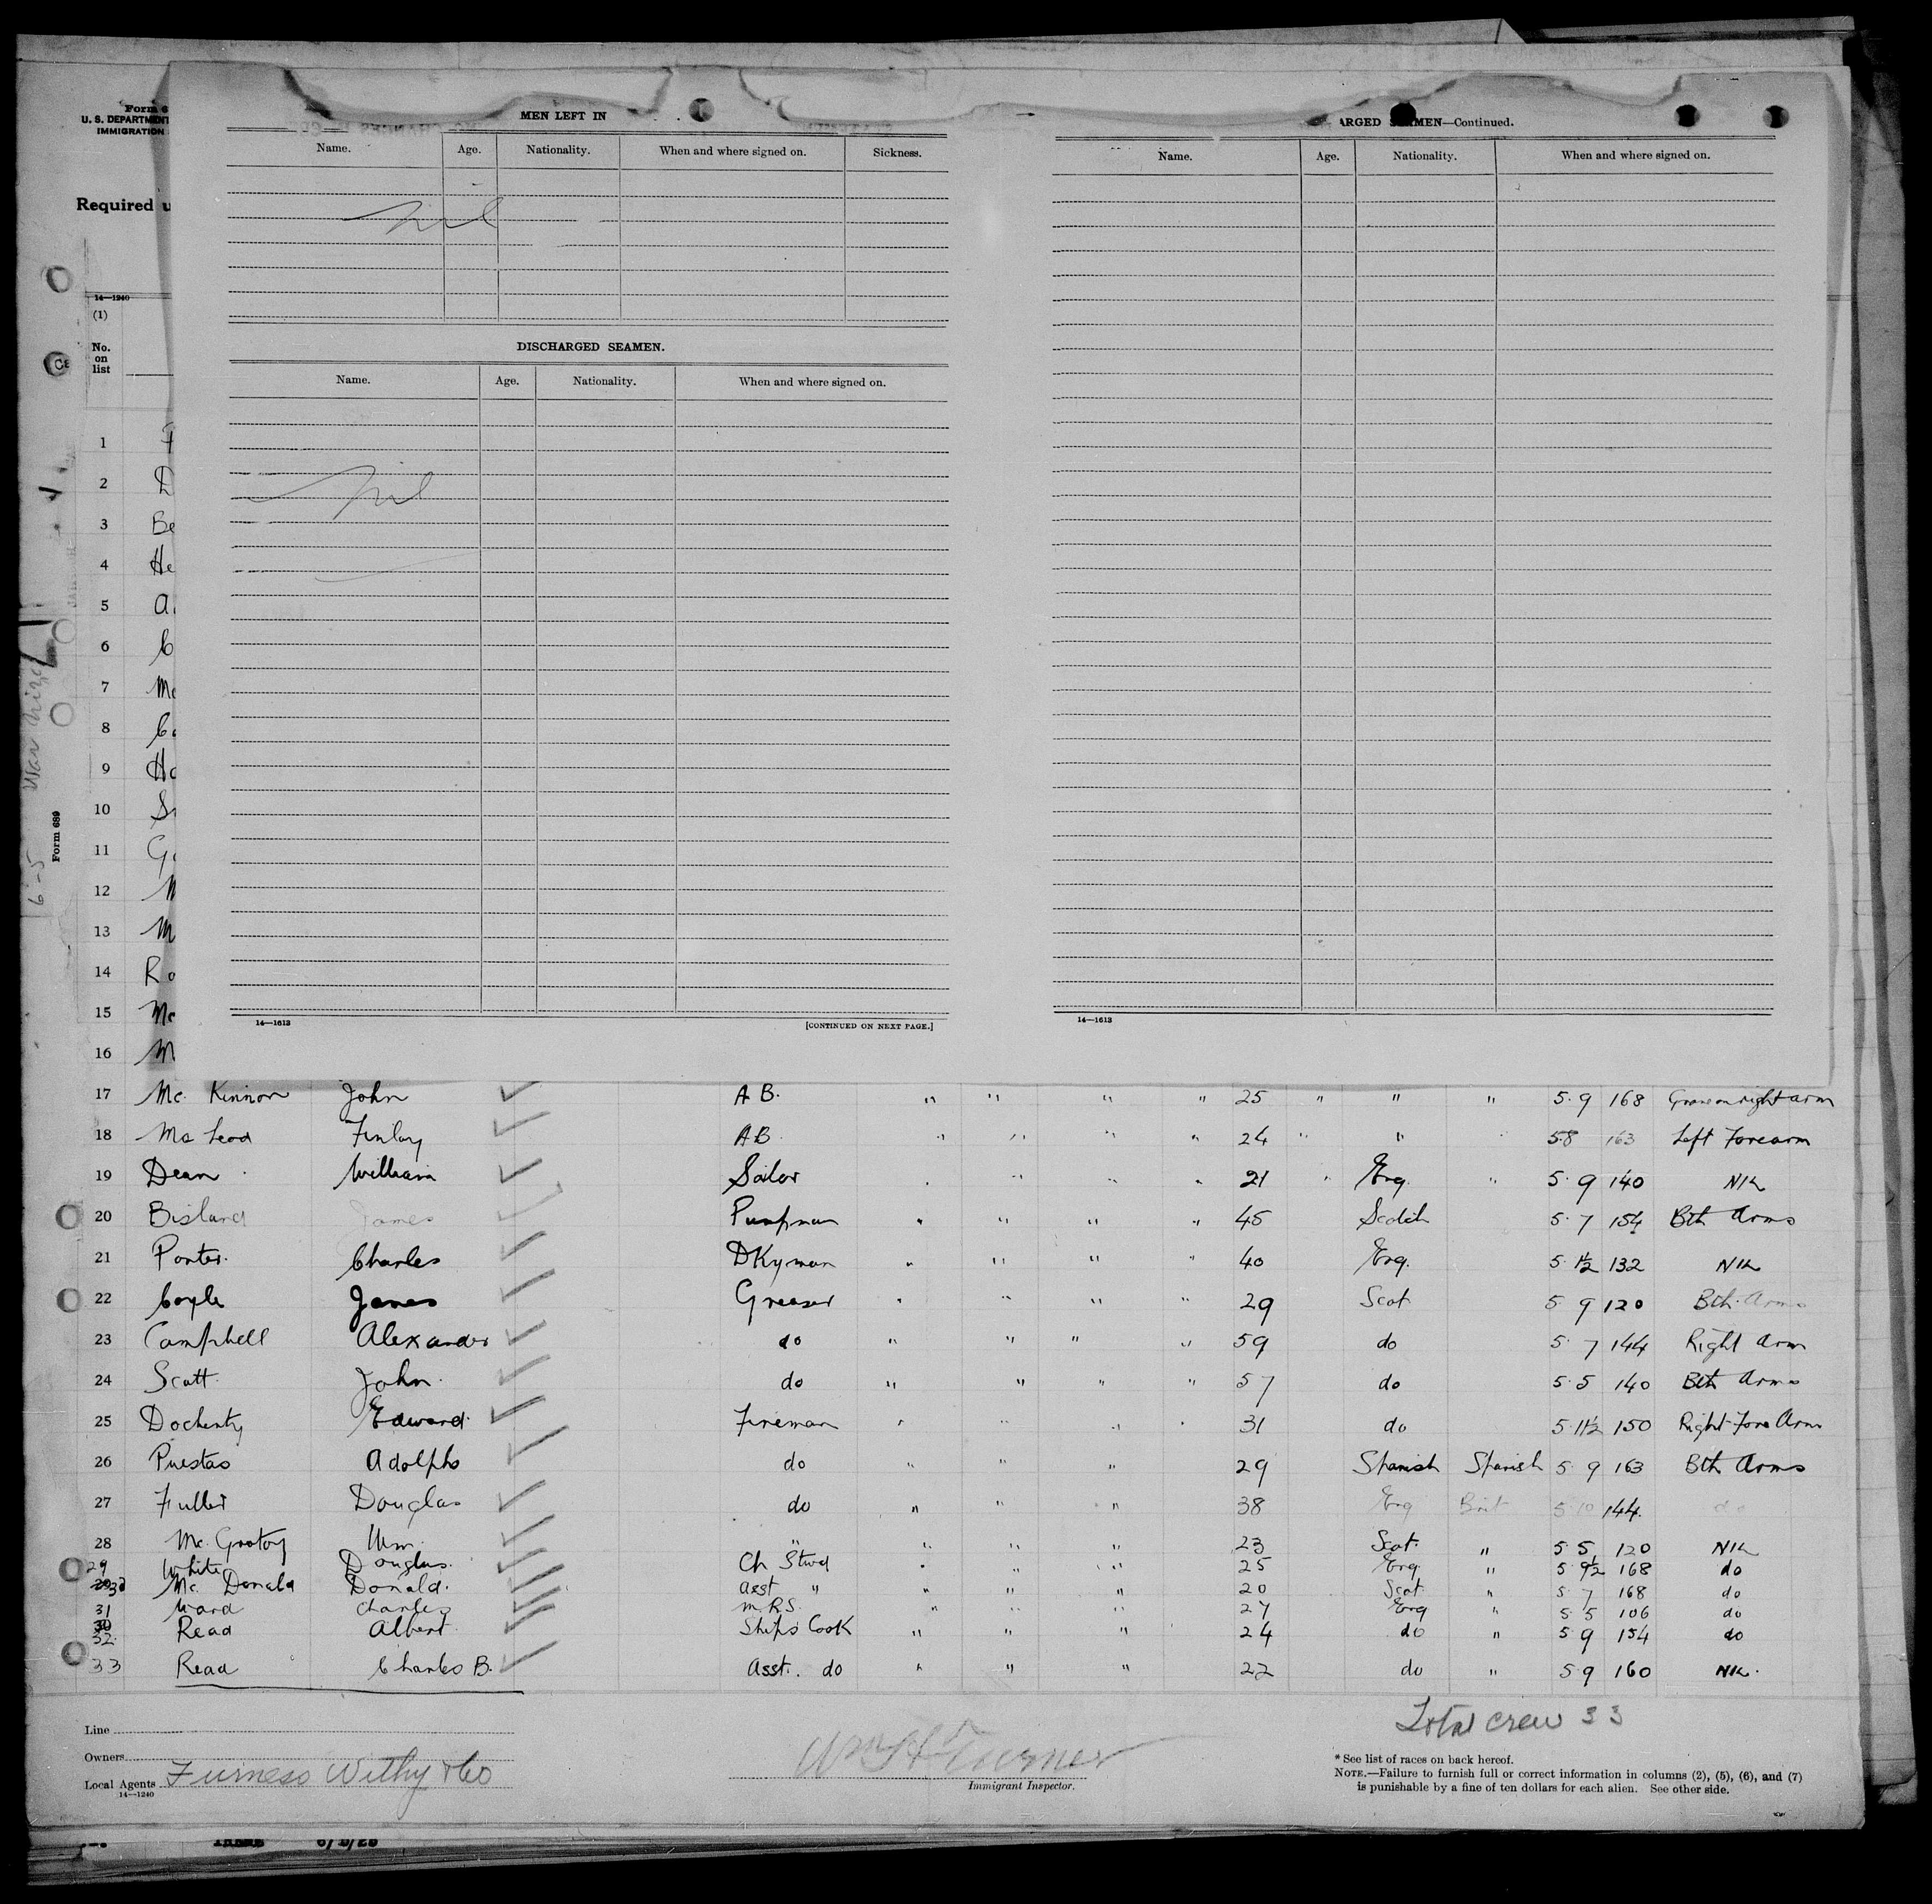 Form 6
U. S. DEPARTMENT
IMMIGRATION
Required u
14—1240
(1)
No.
on
list
Form 689
MEN LEFT IN
Name. Age. Nationality. When and where signed on. Sickness.
nil
DISCHARGED SEAMEN.
Name. Age. Nationality. When and where signed on.
nil
14—1613 [CONTINUED ON NEXT PAGE.]
ARGED SEAMEN—Continued.
Name. Age. Nationality. When and where signed on.
14—1613
1
2 D
3 Be
4 He
5 A
6 C
7 Mc
8 Co
9 Ha
10 S
11 G
12 M
13 M
14 Ro
15 Mc
16 M
17 Mc. Kinnon John A B. " " " " 25 " " " 5·9 168 right arm
18 Mc Leod Finlay AB " " " " 24 " " 5 8 163 Left Forearm
19 Dean William Sailor " " " " 21 " Eng. " 5·9 140 Nil
20 Bisland James Pumpman " " " " 45 Scotch 5·7 154 Bth Arms
21 Porter. Charles DKyman " " " " 40 Eng. 5·1½ 132 Nil
22 Coyle James Greaser " " " " 29 Scot 5 9 120 Bth. Arms
23 Campbell Alexander do " " " " 59 do 5·7 144 Right Arm
24 Scott John. do " " " " 57 do 5·5 140 Bth Arms
25 Docherty Edward. Fireman " " " " 31 do 5·11½ 150 Right Fore Arm
26 Puestas Adolpho do " " " 29 Spanish Spanish 5 9 163 Bth Arms
27 Fuller Douglas do " " " 38 Eng Brit 5 10 144. do
28 Mc. Wm. " " " " 23 Scot. " 5 5 120 Nil
29 White Douglas. Ch Stwd " " " 25 Eng " 5 9½ 168 do
30 Mc. Donald Donald. Asst " " " " 20 Scot " 5 7 168 do
31 Ward Charles M.R.S. " " " 27 Eng " 5 5 106 do
32. Read Albert Ships Cook " " " 24 do " 5 9 154 do
33 Read Charles B. Asst. do " " " 22 do " 5·9 160 Nil.
Total crew 33
Line
Owners
Local Agents Furness Withy & Co
14—1240
Wm H Turner
Immigrant Inspector.
* See list of races on back hereof.
NOTE.—Failure to furnish full or correct information in columns (2), (5), (6), and (7)
is punishable by a fine of ten dollars for each alien. See other side.